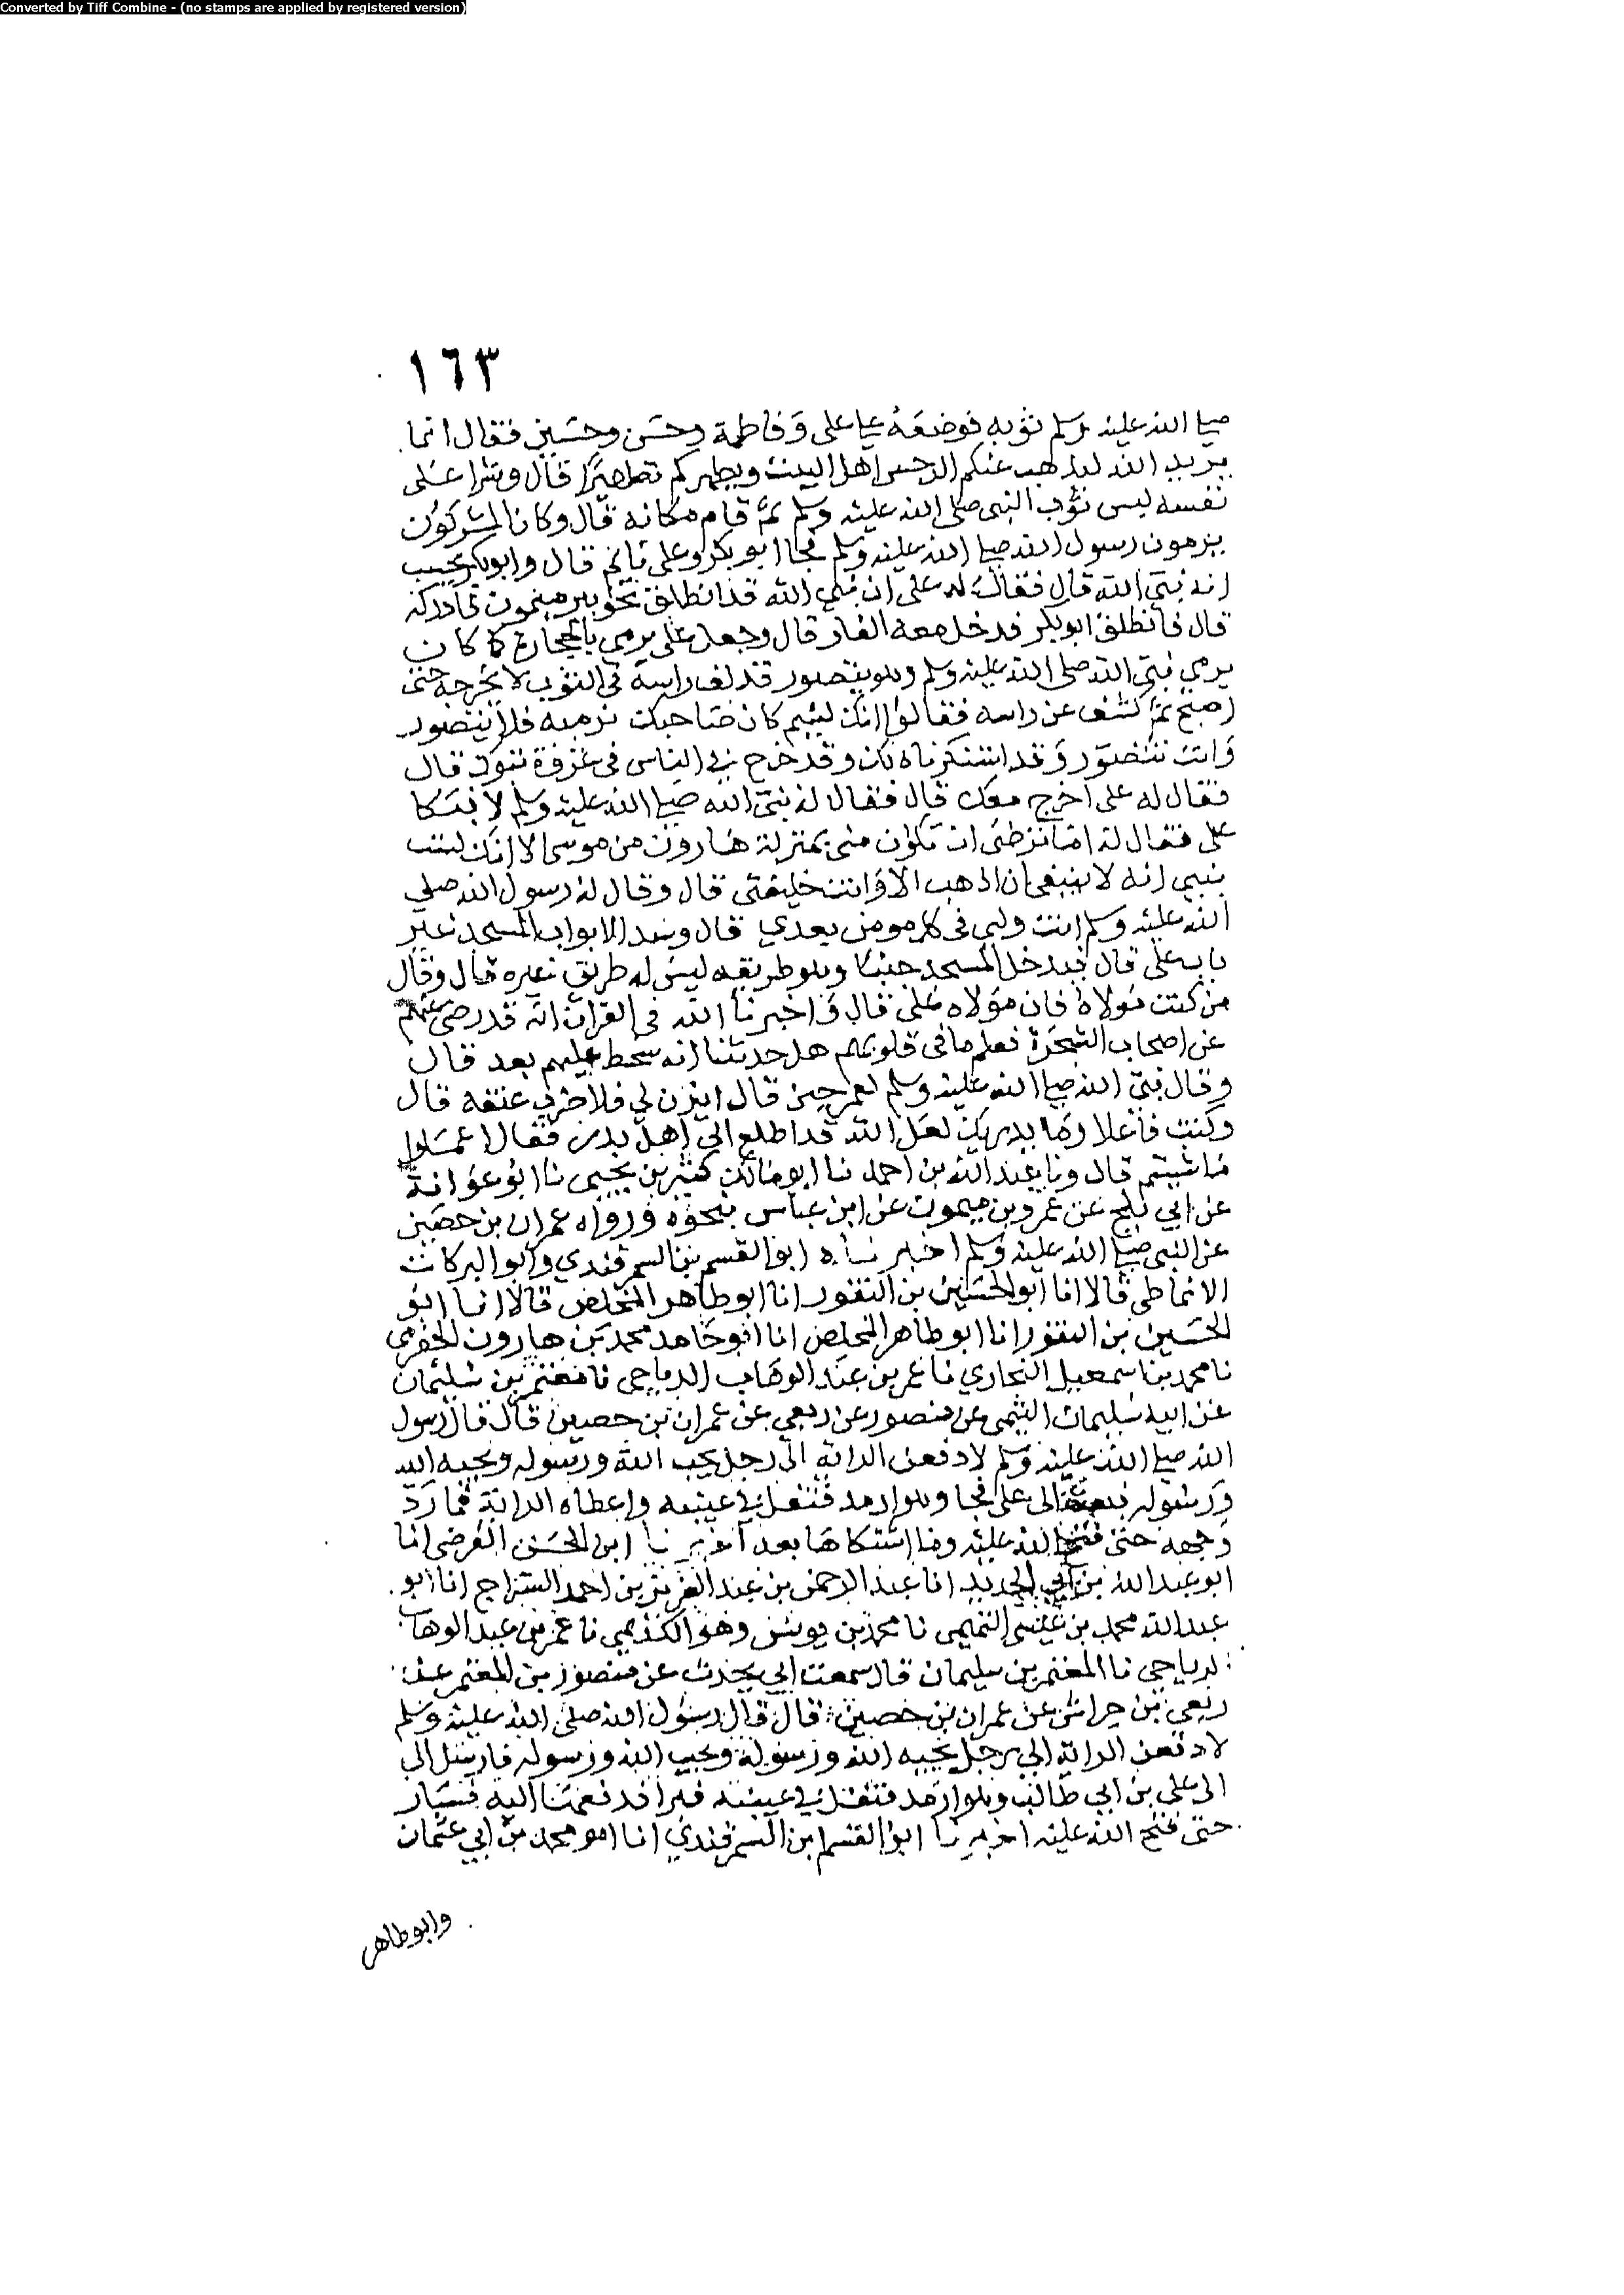 Converted by Tiff Combine - (no stamps are applied by registered version)
١٦٣
صلى الله عليه وسلم ثوبه فوضعه على علي وفاطمة وحسن وحسين فقال انما
يريد الله ليذهب عنكم الرجس اهل البيت ويطهركم تطهيرا قال وشرا علي
نفسه لبس ثوب النبي صلى الله عليه وسلم ثم قام مكانه قال وكان المشركون
يرمون رسول الله صلى الله عليه وسلم فجا ابو بكر وعلي نائم قال وابو بكر يحسب
انه نبي الله قال فقال له علي ان نبي الله قد انطلق نحو بير ميمون فادركه
قال فانطلق ابو بكر فدخل معه الغار قال وجعل علي يرمي بالحجارة كما كان
يرمي نبي الله صلى الله عليه وسلم وهو يتضور قد لف راسه في الثوب لا يخرجه حتى
اصبح ثم كشف عن راسه فقالوا انك لئيم كان صاحبك نرميه فلا يتضور
وانت تتضور وقد استنكرنا ذلك وقد خرج بالناس في غزوة تبوك قال
فقال له علي اخرج معك قال فقال له نبي الله صلى الله عليه وسلم لا فبكا
علي فقال له اما ترضى ان تكون مني بمنزلة هارون من موسى الا انك لست
بنبي انه لا ينبغي ان اذهب الا وانت خليفتي قال وقال له رسول الله صلى
الله عليه وسلم انت وليي في كل مومن بعدي قال وسد الابواب المسجد غير
باب علي قال فيدخل المسجد جنبا وهو طريقه ليس له طريق غيره قال وقال
من كنت مولاه فان مولاه علي قال واخبرنا الله في القران انه قد رضي عنهم
عن اصحاب الشجرة فعلم ما في قلوبهم هل حدثنا انه سخط عليهم بعد قال
وقال نبي الله صلى الله عليه وسلم لعمر حين قال ايذن لي فلاضرب عنقه قال
وكنت فاعلا وما يدريك لعل الله قد اطلع الى اهل بدر فقال اعملوا
ما شيتم قال ونا عبد الله بن احمد نا ابو مالك كثير بن يحيى نا ابو عوانة
عن ابي بلج عن عمرو بن ميمون عن ابن عباس بنحوه ورواه عمران بن حصين
عن النبي صلى الله عليه وسلم اخبرناه ابو القسم بن السمرقندي وابو البركات
الانماطي قالا انا ابو الحسين بن النقور انا ابو طاهر المخلص قالا انا ابو
الحسين بن النقور انا ابو طاهر المخلص انا ابو حامد محمد بن هارون الحضرمي
نا محمد بن اسمعيل البخاري نا عمر بن عبد الوهاب الرياحي نا معتمر بن سليمان
عن ابيه سليمان التيمي عن منصور عن ربعي عن عمران بن حصين قال قال رسول
الله صلى الله عليه وسلم لادفعن الراية الى رجل يحب الله ورسوله ويحبه الله
ورسوله الى علي فجا وهو ارمد فتفل في عينيه واعطاه الراية فما رد
وجهه حتى فتح الله عليه وما اشتكاها بعد اخبرنا ابو الحسن الفرضي انا
ابو عبد الله بن ابي الحديد انا عبد الرحمن بن عبد العزيز بن احمد السراج انا ابو
عبد الله محمد بن عيسى التميمي نا محمد بن يونس وهو الكديمي نا عمر بن عبد الوهاب
الرياحي نا المعتمر بن سليمان قال سمعت ابي يحدث عن منصور بن المعتمر عن
ربعي بن حراش عن عمران بن حصين قال قال رسول الله صلى الله عليه وسلم
لادفعن الراية الى رجل يحبه الله ورسوله ويحب الله ورسوله فارسل الى
الى علي بن ابي طالب وهو ارمد فتفل في عينيه فبرا فدفعها اليه فسار
حتى فتح الله عليه اخبرنا ابو القسم ابن السمرقندي انا ابو محمد بن ابي عثمان
وابو طاهر